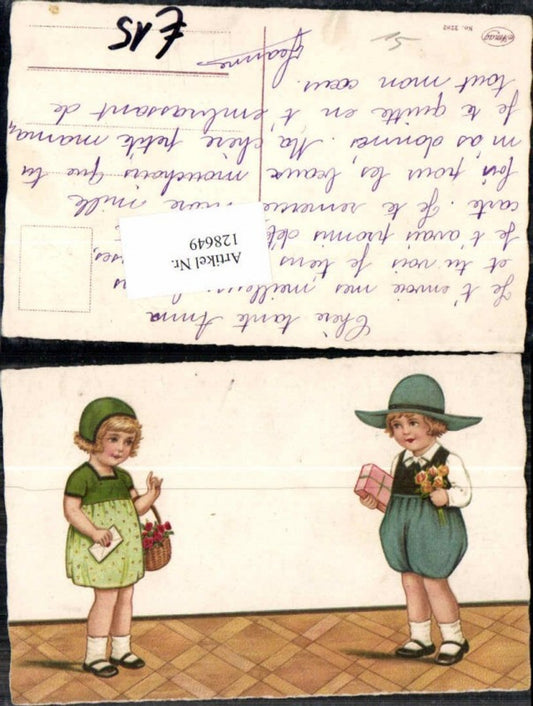 Chère tante Anna
Je t'envoie mes meilleurs
et tu vois je tiens
Je t'avais promis
carte. Je te remercie mille
fois pour les beaux mouchoirs que tu
m'as donnés. Ma chère petite maman,
je te quitte en t'embrassant de
tout mon cœur.
Jeanne
Artikel Nr.
128649
£15
No. 2282